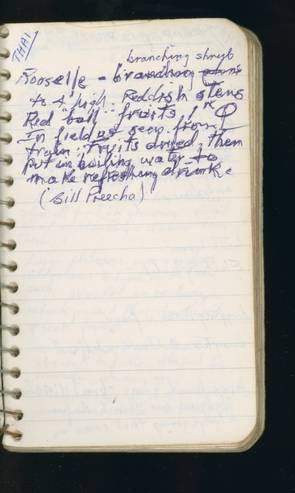 THAI
branching shrub
Rooselle - branching
to 4' high. Reddish stems
Red "ball" fruits
In field as seen from
train. Fruits dried, then
put in boiling water to
make refreshing drink.
(Bill Preecha)